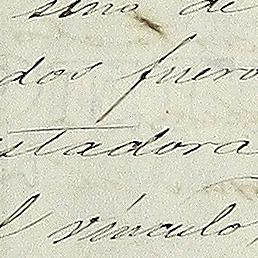 sino de
dos fuero
stadora
l vínculo,